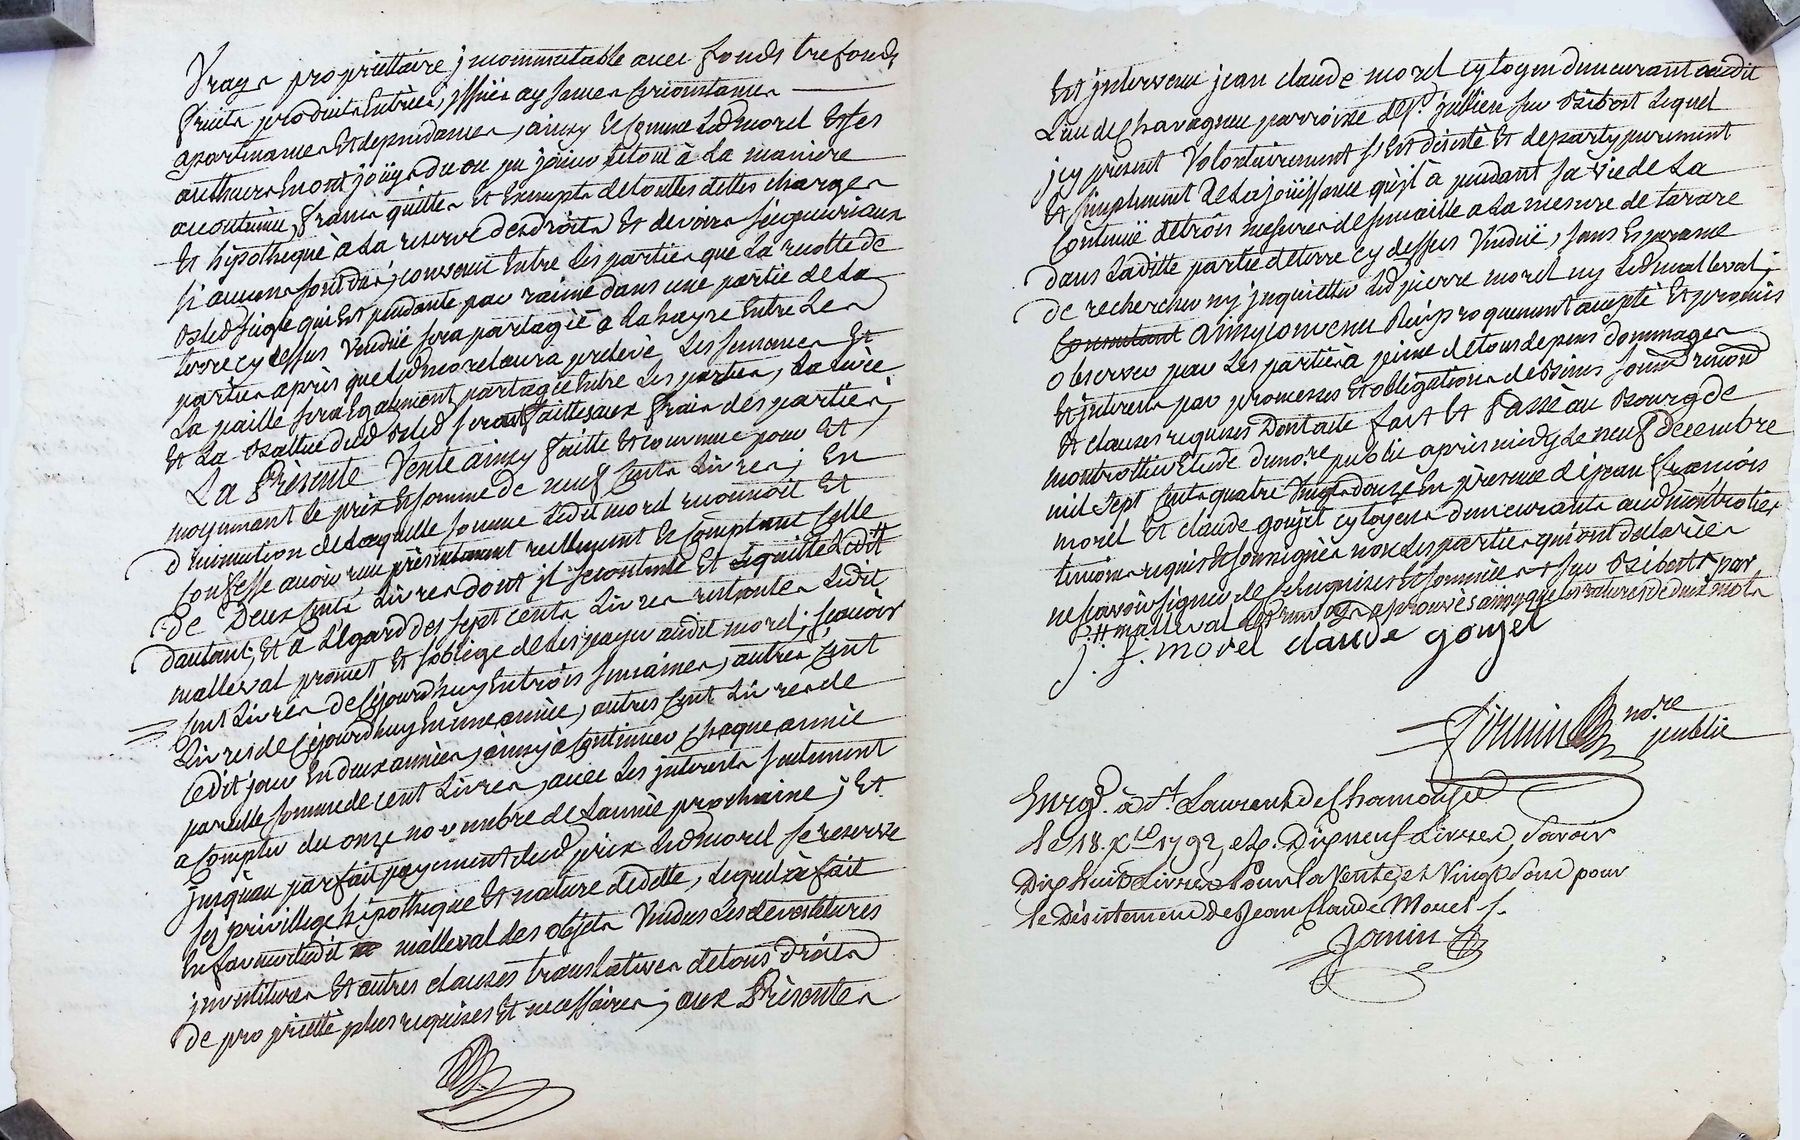 Vraye propriettaire jncommutable avec fonds trefonds
fruits produits Entrées, yssües aysances circonstances
apartenances Et dependances, ainsy Et comme Led morel Et ses
autheurs En ont jöüy ou pu jöüir, Letout à La maniere
acoutumée, francs quittes Et Exempts detouttes dettes charges
Et hipotheque a La reserve des droits Et devoirs seigneuriaux
si aucuns sont dus; convenu Entre Les parties que La recolte de
Bled seigle qui Est pendante par racine dans une partie de La
terre cy dessus Venduë sera partagéé a La hayre Entre Les
parties après que Led morel aura prelevé Les semances Et
La paille sera Egalement partagée Entre Les parties, La cüie
Et La Battue dud Bled seront faittes aux frais des parties,
La Présente Vente ainsy faitte Et convenue pour Et
moyennant Le prix Et somme de neuf Cents Livres; En
diminution de Laquelle somme Ledit morel reconnoit Et
Confesse avoir reçu présentement réellement Et Comptant Celle
De Deux Cents Livres dont jl se contente Et En quitte Ledit
dautant; Et a L'Egard des sept cents Livres restantes Ledit
malleval promet Et s'oblige de Les payer audit morel; sçavoir
Cent Livres de Cejourd'huy En trois semaines, autres Cent
Livres de Cejourd'huy En une année, autres Cent Livres de
Cedit jour En deux années, ainsy à Continuer Chaque année
pareille somme de cent Livres, avec Les jnterests seulement
a Compter du onze novembre de L'année prochaine; Et
jusqu'au parfait payement dud prix Led morel se reserve
Ses privillege hipotheque Et nature de dette, Lequel à fait
En faveur dudit malleval des objets Vendus Les devestitures
jnvestitures Et autres clauses translatives de tous droits
de proprietté plus requises Et necessaires; aux Présentes
Est jntervenu jean claude morel Cytoyen demeurant audit
Lieu de Chavagneu parroisse de St. jullien sur Bibost Lequel
jcy présent Volontairement s'Est désisté Et departy purement
Et simplement de La jöüissance qu'jl à pendant sa Vie de La
Contenüe de trois mesures de semaille a La mesure de tarare
dans Laditte partie de terre cy dessus Venduë, sans Esperance
de rechercher ny jnquietter Led pierre morel ny Led malleval;
ainsy convenu Réciproquement accepté Et promis
observer par Les parties à peine de tous depens dommages
Et jnterests par promesses Et obligations de Biens soumis renond
Et clauses requises Dont acte fait Et Passé au Bourg de
montrottier Etude du nore. public après midy Le neuf decembre
mil sept Cents quatre Vingts douze En présence de jean francois
morel Et claude goujet cytoyens demeurants aud montrotier
temoins requis Et soussignés non Les parties qui ont declarées
ne sçavoir signer de ce Enquises Et sommées + sur Bibost + par
# malleval Les renvoys aprouvés ainsy que Les ratures de deux mots
j. f. morel claude goujet
nore.
public
Enrgé. à St. Laurent de Chamousset
le 18. Xbre 1792, Rç. Dixneuf Livres, Savoir
Dix huit Livres Pour la vente, et vingt sous pour
le Désistement de Jean Claude Morel
Jomin